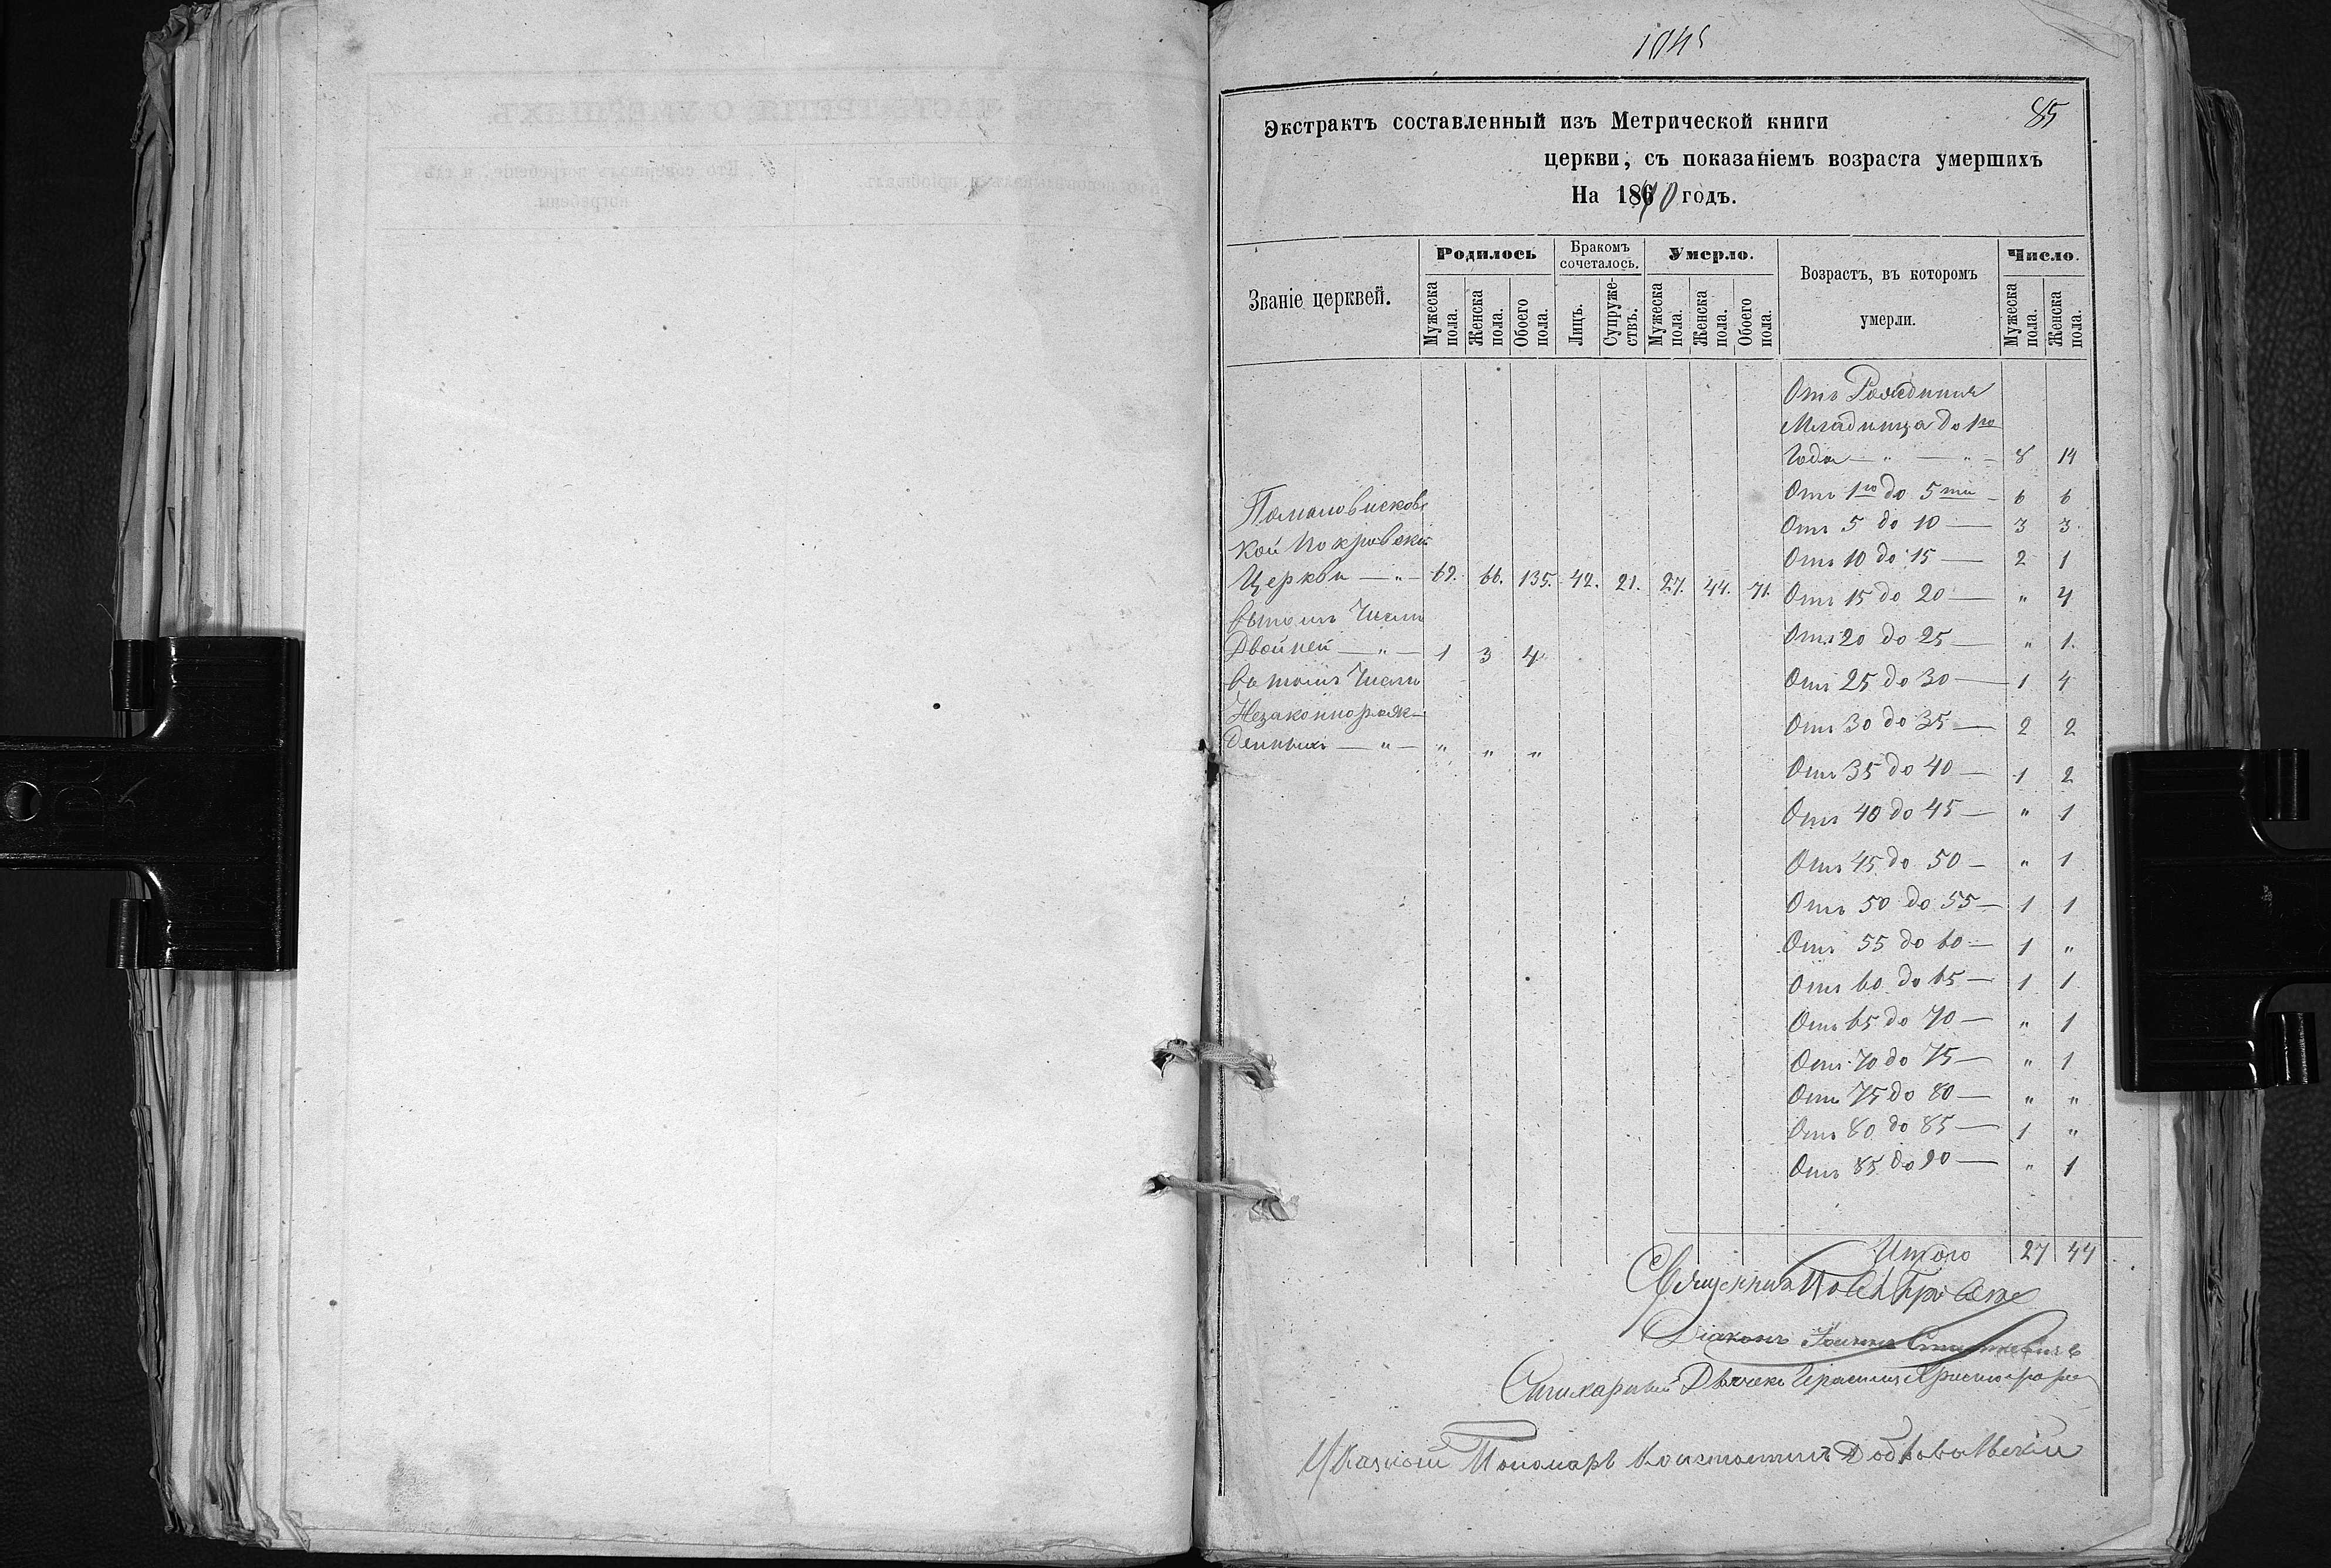 85
Экстрактъ составленный изъ Метрической книги
церкви, съ показаніемъ возраста умершихъ
На 1870 годъ.
Званіе церквей.
Родилось
Бракомъ сочеталось.
Умерло.
Возрастъ, въ которомъ умерли.
Число.
Мужеска пола.
Женска пола.
Обоего пола.
Лицъ.
Супружествъ.
Мужеска пола.
Женска пола.
Обоего пола.
Мужеска пола.
Женска пола.
Отъ Рожденія
Младенца до 1го
Года — " — " — 8 14
Отъ 1го до 5ти — 6 6
Отъ 5 до 10 — 3 3
Отъ 10 до 15 — 2 1
Отъ 15 до 20 — " 4
Отъ 20 до 25 — " 1.
Отъ 25 до 30 — 1 4
Отъ 30 до 35 — 2 2
Отъ 35 до 40 — 1 2
Отъ 40 до 45 — " 1
Отъ 45 до 50 — " 1
Отъ 50 до 55 — 1 1
Отъ 55 до 60 — 1 "
Отъ 60 до 65 — 1 1
Отъ 65 до 70 — " 1
Отъ 70 до 75 — " 1
Отъ 75 до 80 — " "
Отъ 80 до 85 — 1 "
Отъ 85 до 90 — " 1
Итого 27 44
кой Покровской
Церкви — " — 69. 66. 135. 42. 21. 27. 44. 71.
вътомъ Числѣ
Двойней — " — 1 3 4
въ томъ Числѣ
Незаконнорож-
денныхъ — " — " " "
Священник
Діаконъ
Стихарный Дьячекъ
Указной Пономарь Константинъ